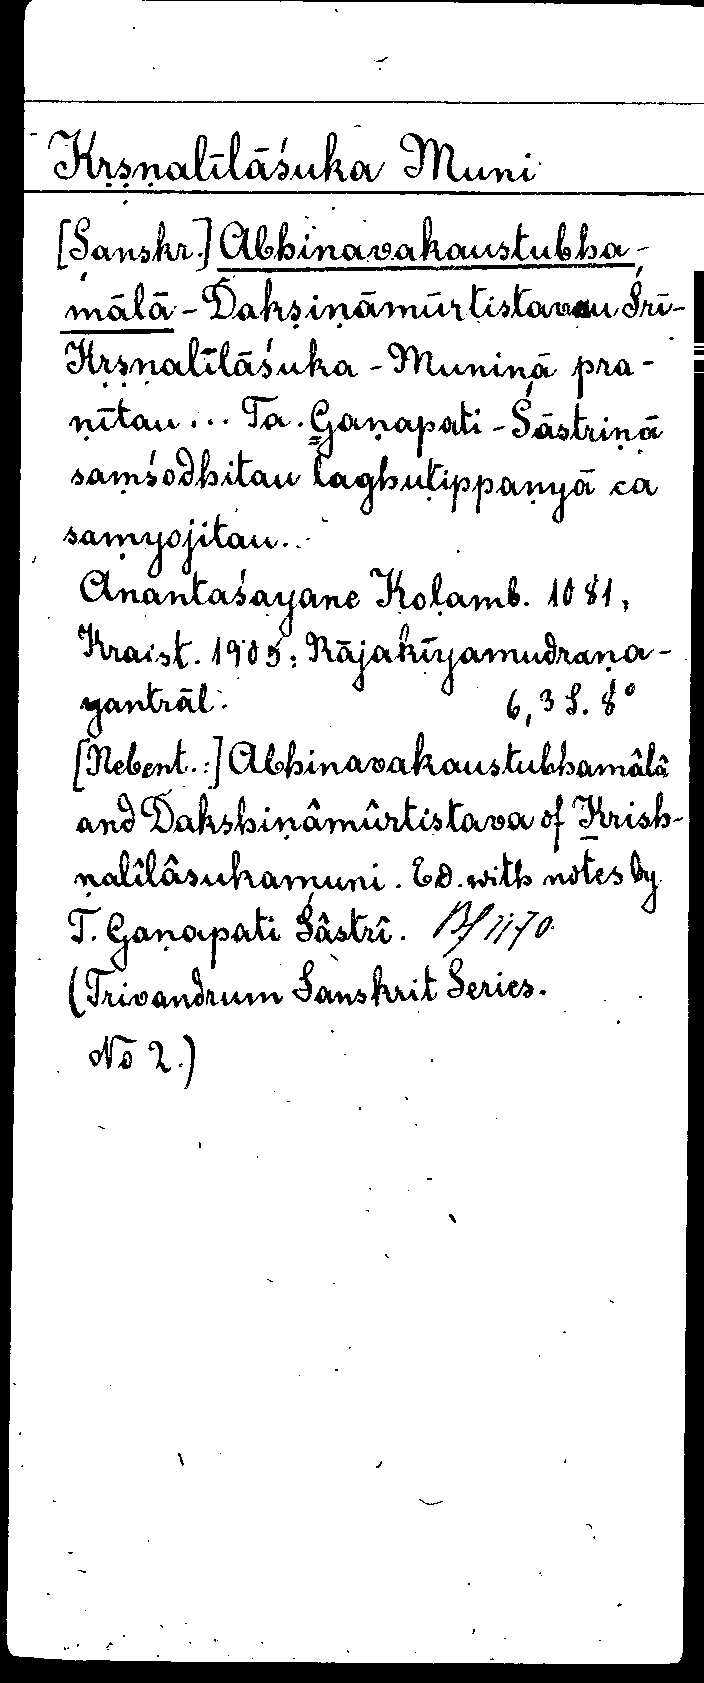 Kṛṣṇalīlāśuka Muni
[Sanskr.] Abhinavakaustubha-
mālā - Dakṣiṇāmūrtistavau Śrī-
Kṛṣṇalīlāśuka - Muninā pra-
ṇītau ... Ta. Gaṇapati - Śāstriṇā
saṃśodhitau laghuṭippaṇyā ca
saṃyojitau...
Anantaśayane Koḷamb. 1081,
Kraist. 1905: Rājakīyamudraṇa-
yantrāl. 6, 3 S. 8°
[Nebent.:] Abhinavakaustubhamâlâ
and Dakshiṇâmûrtistava of Krish-
ṇalîlâsukamuni. Ed. with notes by
T. Gaṇapati Śâstrî. Bf 1170
(Trivandrum Sanskrit Series.
No 2.)